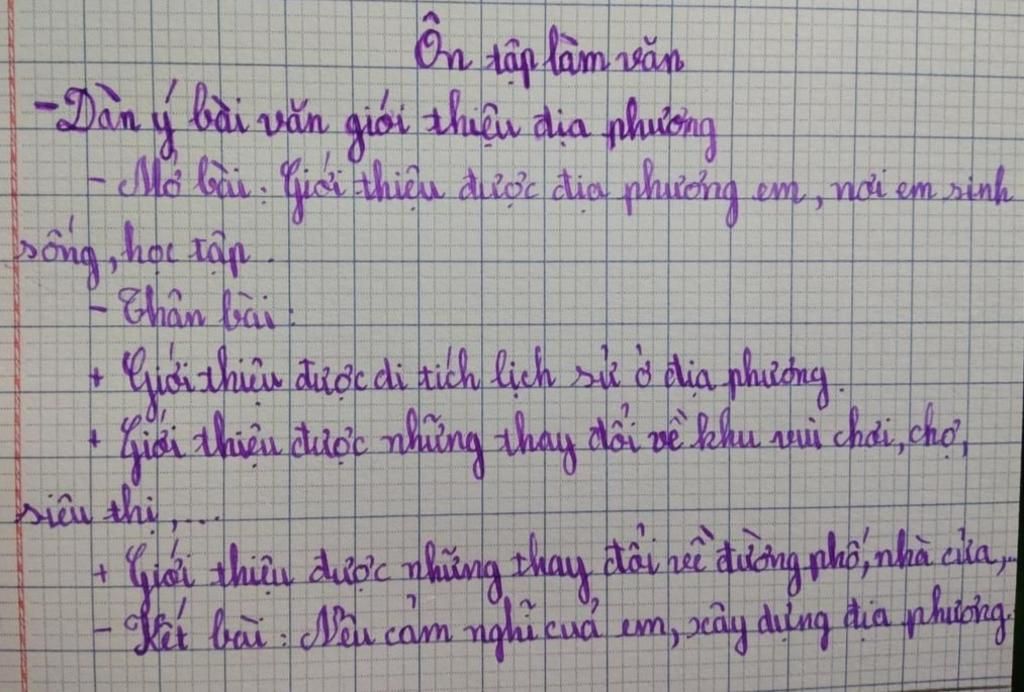 Ôn tập làm văn
- Dàn ý bài văn giới thiệu địa phương
- Mở bài: Giới thiệu được địa phương em, nơi em sinh
sống, học tập.
- Thân bài:
+ Giới thiệu được di tích lịch sử ở địa phương.
+ Giới thiệu được những thay đổi về khu vui chơi, chợ,
siêu thị,...
+ Giới thiệu được những thay đổi về đường phố, nhà cửa,...
- Kết bài: Nêu cảm nghĩ của em, xây dựng địa phương.